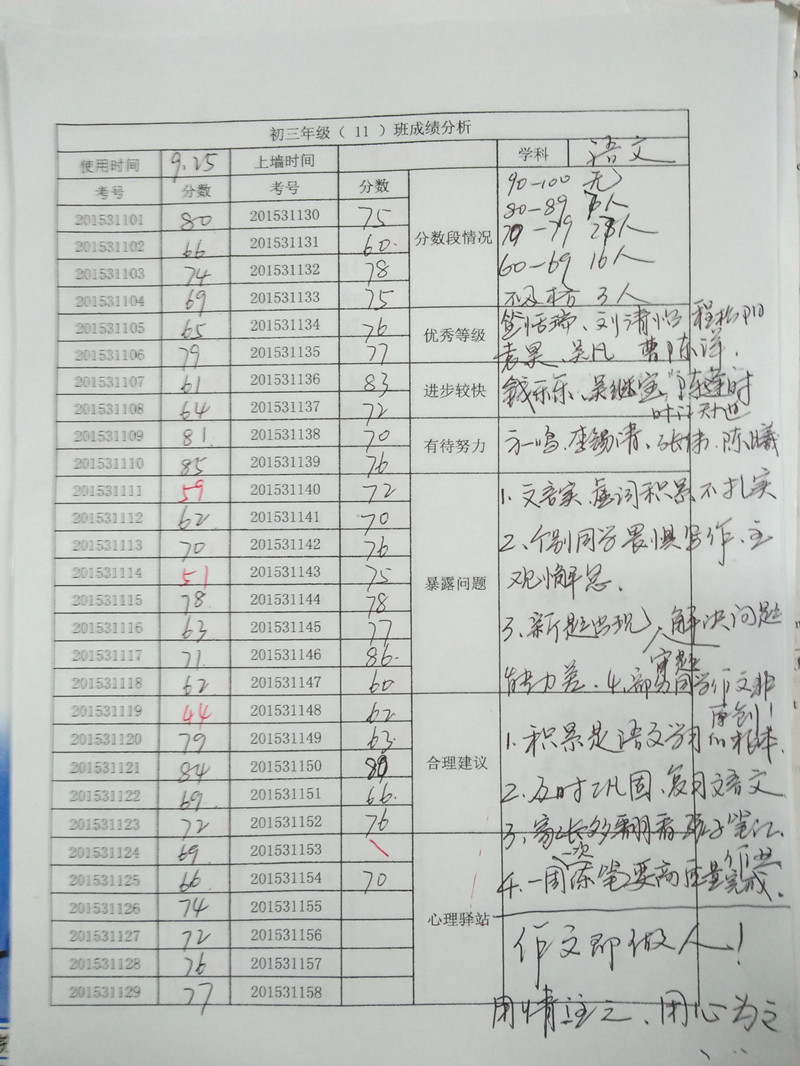 初三年级（ 11 ）班成绩分析
使用时间 9.25 上墙时间 学科 语文
考号 分数 考号 分数 分数段情况 90—100 无
201531101 80 201531130 75 80—89 人
201531102 66 201531131 60 —79 人
201531103 74 201531132 78 60—69 16人
201531104 69 201531133 75 不及格 3人
201531105 65 201531134 76 优秀等级
201531106 79 201531135 77 吴凡
201531107 61 201531136 83 进步较快 钱乐乐、吴继宝
201531108 64 201531137 72
201531109 81 201531138 70 有待努力 张伟、陈曦
201531110 85 201531139 76
201531111 59 201531140 72 暴露问题 1. 文言实、虚词积累不扎实
201531112 62 201531141 70
201531113 70 201531142 76 2、个别同学畏惧写作、主
201531114 51 201531143 75 观懈怠.
201531115 78 201531144 78
201531116 63 201531145 77 3、新题出现 解决问题
201531117 71 201531146 86 审题
201531118 62 201531147 60 能力差. 4. 部分同学作文非
201531119 44 201531148 62 合理建议 原创!
201531120 79 201531149 63 1. 积累是语文学习的根本.
201531121 84 201531150
201531122 69 201531151 66 2. 及时巩固、复习文言文
201531123 72 201531152 76 3、家长多翻看孩子笔记.
201531124 69 201531153 心理驿站 一次 作业
201531125 66 201531154 70 4. 一周 笔要高质量完成.
201531126 74 201531155
201531127 72 201531156 作文即做人!
201531128 76 201531157
201531129 77 201531158 用情 之、用心为之